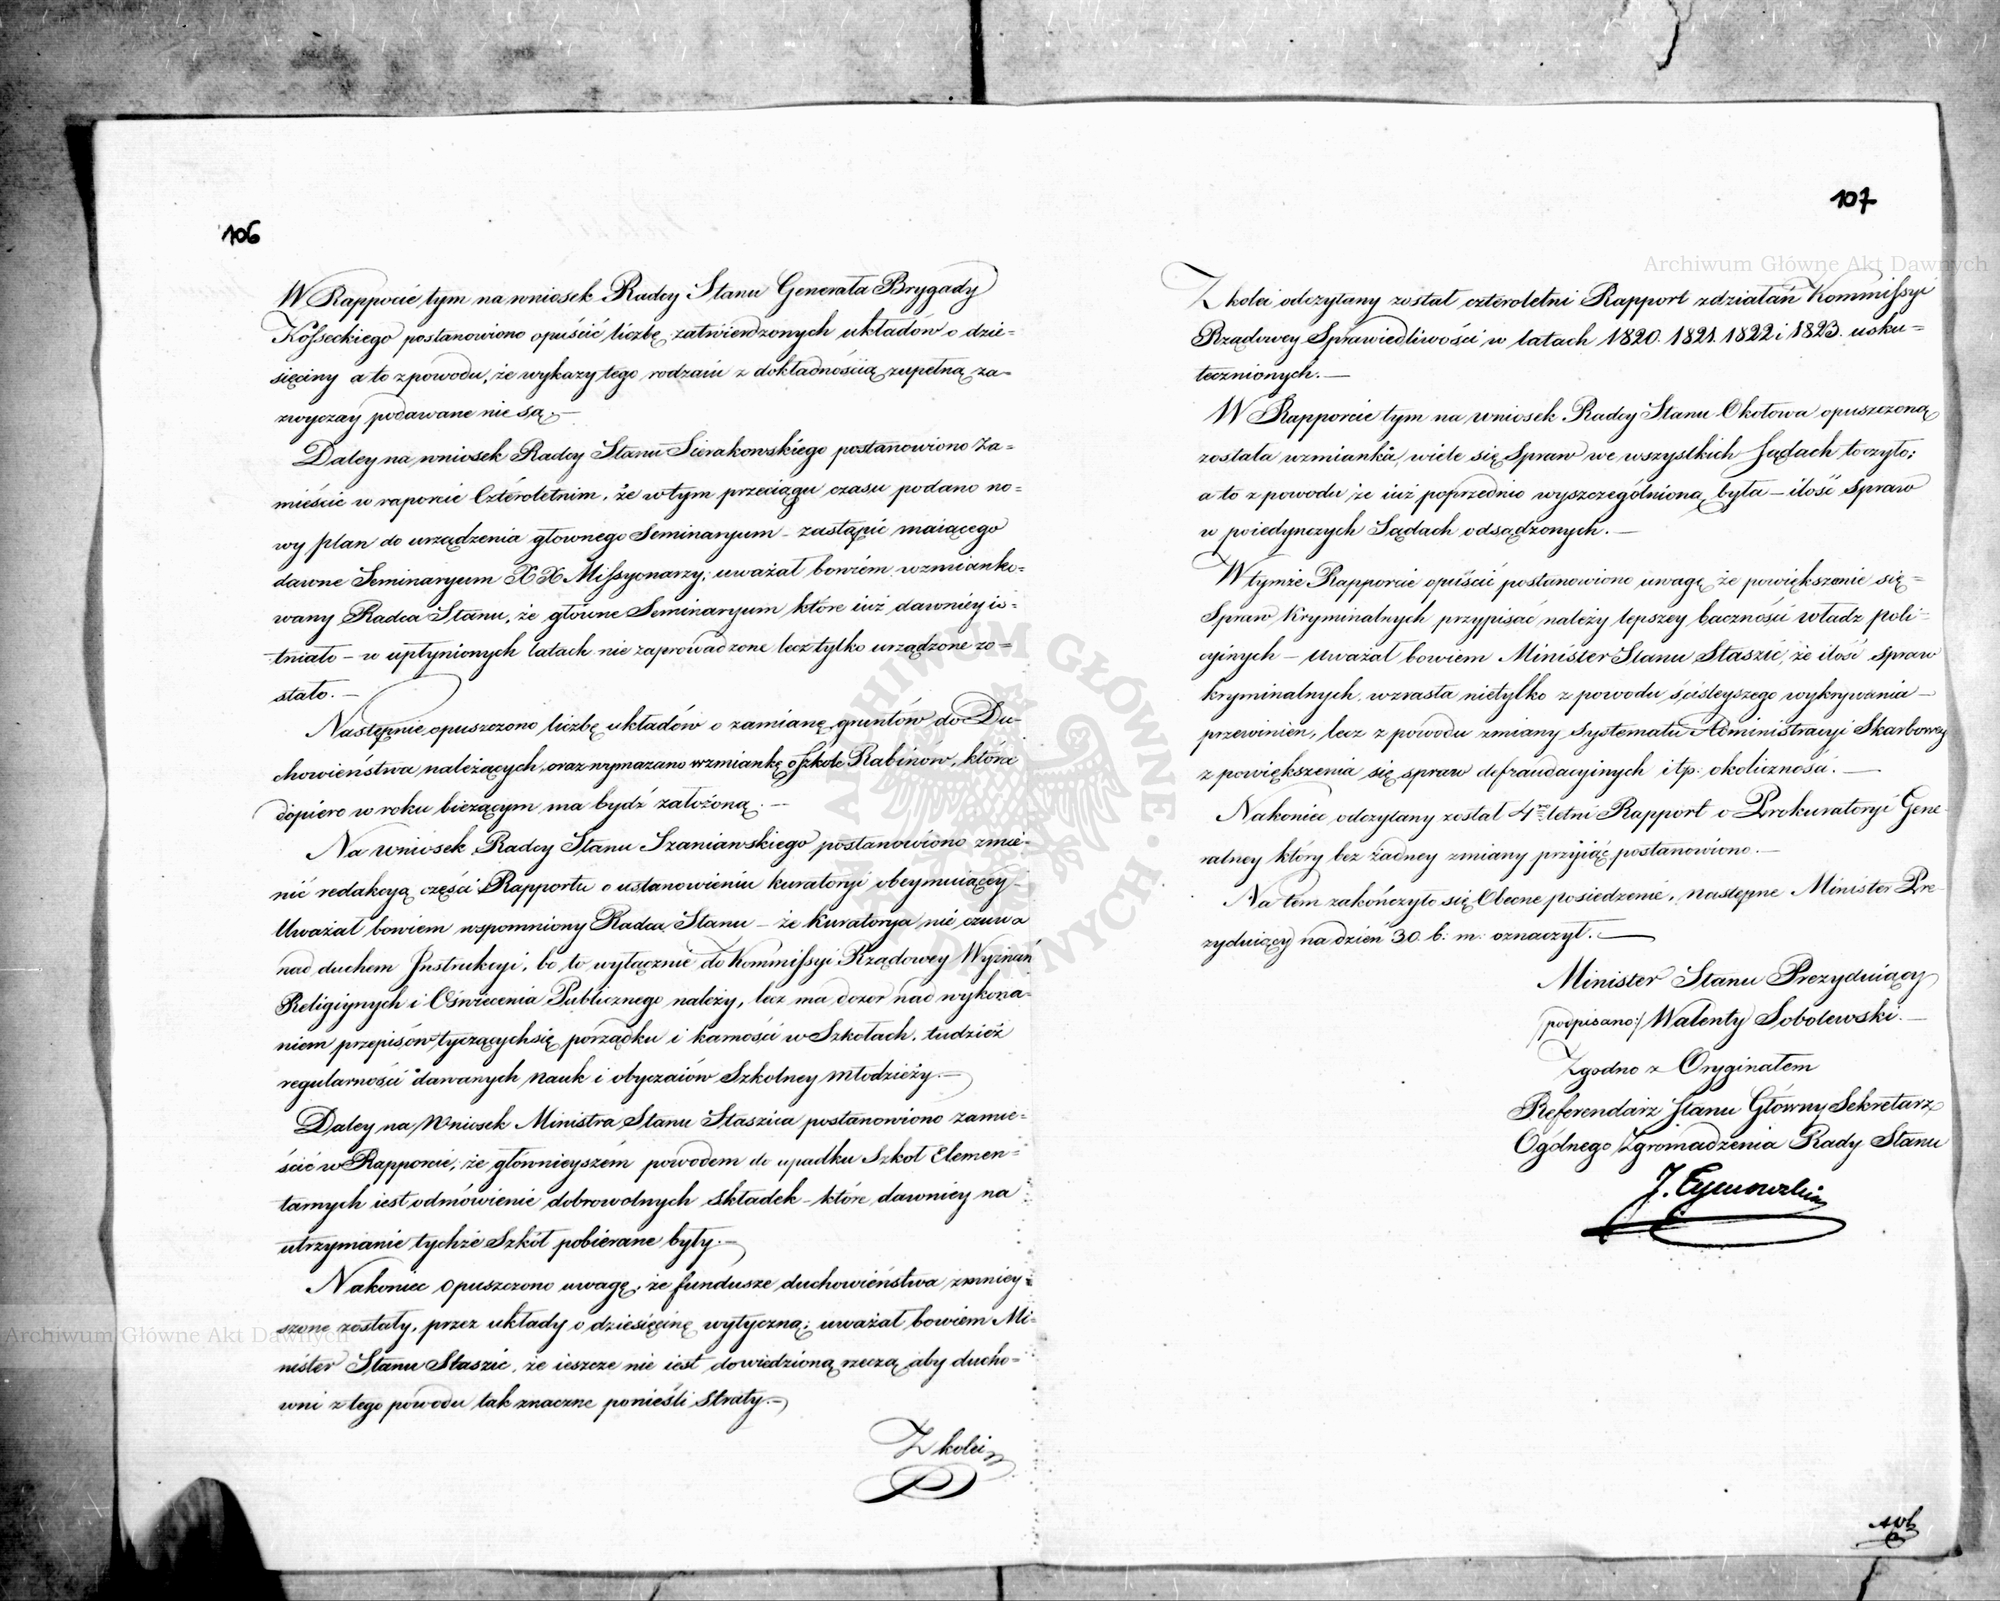 106
W Rapporcie tym na wniosek Radcy Stanu Generała Brygady
Kosseckiego postanowiono opuścić liczbę zatwierdzonych układów o dzie-
sięciny a to z powodu, że wykazy tego rodzaiu z dokładnością zupełną za-
zwyczay podawane nie są. —
Daley na wniosek Radcy Stanu Sierakowskiego postanowiono Za-
mieścić w raporcie Czteroletnim, że w tym przeciągu czasu podano no-
wy plan do urządzenia głownego Seminaryum – zastąpić maiącego
dawne Seminaryum XX Missyonarzy; uważał bowiem wzmianko-
wany Radca Stanu, że główne Seminaryum które iuż dawniey is-
tniało – w upłynionych latach nie zaprowadzone lecz tylko urządzone zo-
stało. —
Następnie opuszczono liczbę układów o zamianę gruntów do Du-
chowieństwa należących, oraz wymazano wzmiankę o szkole Rabinów, która
dopiero w roku bieżącym ma bydź założoną. —
Na wniosek Radcy Stanu Szaniawskiego postanowiono zmie-
nić redakcyą części Rapportu o ustanowieniu kuratoryi obeymuiącey –
Uważał bowiem wspomniony Radca Stanu – że Kuratorya nie czuwa
nad duchem Instrukcyi, bo to wyłącznie do Kommissyi Rządowey Wyznań
Religiynych i Oświecenia Publicznego należy, lecz ma dozor nad wykona-
niem przepisów tyczącychsię porządku i karności w Szkołach, tudzież
regularności dawanych nauk i obyczaiów Szkolney młodzieży. —
Daley na Wniosek Ministra Stanu Staszica postanowiono zamie-
ścić w Rapporcie, że głównieyszém powodem do upadku Szkół Elemen-
tarnych iest odmówienie dobrowolnych składek – które dawniey na
utrzymanie tychże Szkół pobierane były. —
Nakoniec opuszczono uwagę, że fundusze duchowieństwa zmniey-
szone zostały, przez układy o dziesięcinę wytyczną; uważał bowiem Mi-
nister Stanu Staszic, że ieszcze nie iest dowiedzioną rzeczą aby ducho-
wni z tego powodu tak znaczne ponieśli Straty. —
Z kolei
107
Z kolei odczytany został czteroletni Rapport z działań Kommissyi
Rządowey Sprawiedliwości w latach 1820. 1821. 1822 i 1823. usku-
tecznionych. —
W Rapporcie tym na wniosek Radcy Stanu Okołowa opuszczoną
została wzmianka, wiele się Spraw we wszystkich Sądach toczyło;
a to z powodu że iuż poprzednio wyszczególnioną była – ilość Spraw
w poiedynczych Sądach odsądzonych. —
W tymże Rapporcie opuścić postanowiono uwagę, że powiększenie się
Spraw Kryminalnych przypisać należy lepszey baczności władz poli-
cyinych – Uważał bowiem Minister Stanu Staszic, że ilość spraw
kryminalnych, wzrasta nietylko z powodu ściśleyszego wykrywania –
przewinień, lecz z powodu zmiany Systematu Administracyi Skarbowey
z powiększenia się spraw defraudacyinych i t.p. okoliczności. —
Nakoniec odczytany został 4ro letni Rapport o Prokuratoryi Gene-
ralney który bez żadney zmiany przyiąć postanowiono. —
Na tem zakończyło się Obecne posiedzenie, następne Minister Pre-
zyduiący na dzień 30. b: m: oznaczył. —
Minister Stanu Prezyduiący
/podpisano:/ Walenty Sobolewski. —
Zgodno z Oryginałem
Referendarz Stanu Główny Sekretarz
Ogólnego Zgromadzenia Rady Stanu
Archiwum Główne Akt Dawnych
Archiwum Główne Akt Dawnych
ARCHIWUM GŁÓWNE AKT DAWNYCH